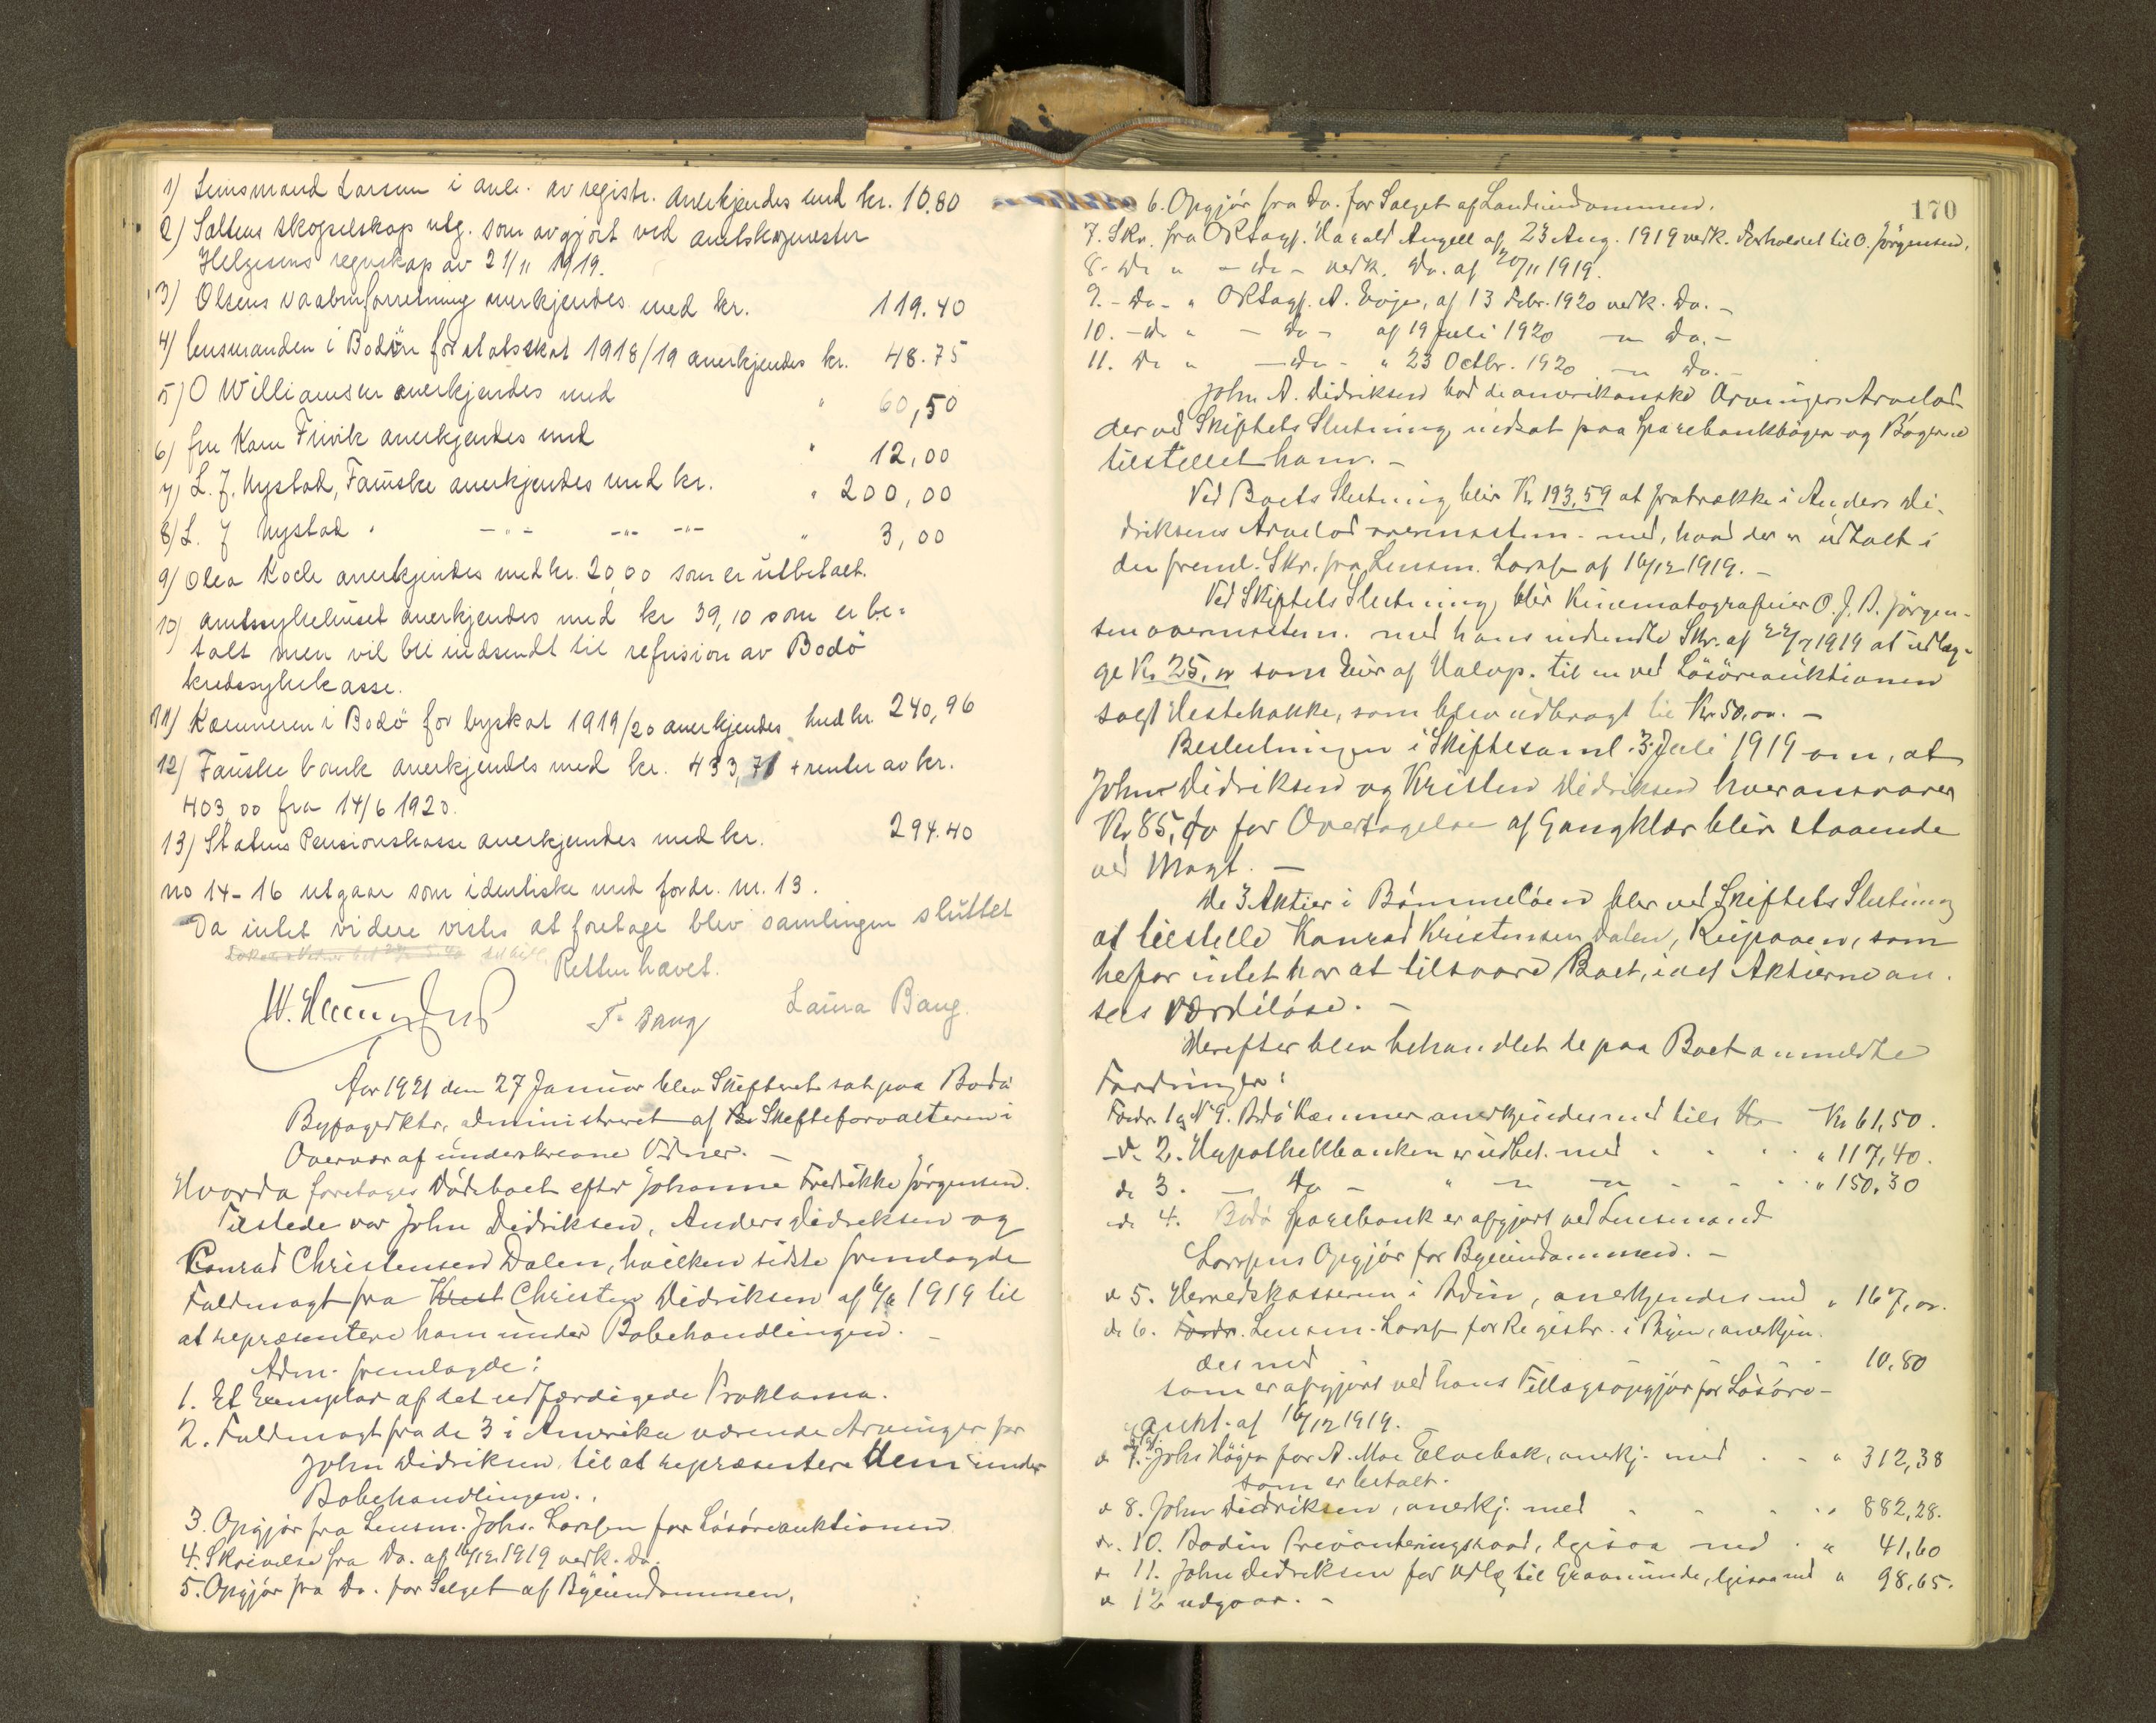 1) Lensmand Larsen i anl. av registr. anerkjendes med kr. 10.80
2) Saltens skogselskap utg. som avgjort ved amtskogmester
Helgesens regnskap av 21/11 1919.
3) Olsens vaabenforretning anerkjendes med kr. 119.40
4) lensmanden i Bodin for statsskat 1918/19 anerkjendes kr. 48.75
5) O Williamsen anerkjendes med " 60,50
6) fru Kam anerkjendes med " 12,00
7) L. J. Nystad, Fauske anerkjendes med kr. " 200,00
8) L. J Nystad " -"- -"- -"- " 3,00
9) Olea Koch anerkjendes med kr. 20,00 som er utbetalt.
10) amtssykehuset anerkjendes med kr 39,10 som er be-
talt men vil bli indsendt til refusion av Bodö
kredssykekasse.
11) Kæmneren i Bodö for byskat 1919/20 anerkjendes med kr. 240,96
12) Fauske bank anerkjendes med kr. 433,71 + renter av kr.
403,00 fra 14/6 1920.
13) Statens Pensionskasse anerkjendes med kr. 294.40
no 14-16 utgaar som identiske med fordr. nr. 13.
Da intet videre vistes at foretage blev samlingen sluttet
Retten hævet.
F. Bang Laura Bang.
Aar 1921 den 27 Januar blev Skifteret sat paa Bodö
Byfogedktr, administreret af Skifteforvalteren i
Overvær af underskrevne Vidner. -
Hvorda foretages Dödsboet efter Johanne Fredrikke Jörgensen.
Tilstede var John Didriksen, Anders Didriksen og
Conrad Christensen Dalen, hvilken sidste fremlagde
Fuldmagt fra Krist Christen Didriksen af 6/6 1919 til
at repræsentere ham under Bobehandlingen. -
Adm. fremlagde:
1. Et Exemplar af det udfærdigede Proklama.
2. Fuldmagt fra de 3 i Amerika værende Arvinger for
John Didriksen til at repræsentere dem under
Bobehandlingen.
3. Opgjör fra Lensm. Johs. Larssen for Lösöreauktionen
4. Skrivelse fra Do. af 16/12 1919 vedk. Do.
5. Opgjör fra Do. for Salget af Byeiendommen.
170
6. Opgjör fra Do. for Salget af Landeiendommen.
7. Skr. fra ORSagf. Harald Angell af 23 Aug. 1919 vedk. Forholdet til O. Jörgensen.
8. Do " - Do - vedk. Do. af 20/11 1919.
9. - Do - " ORSagf. A. , af 13 Febr. 1920 vedk. Do. -
10. - Do " - Do - af 19 Juli 1920 - " Do. -
11. Do " - Do - " 23 Octbr. 1920 - " Do. -
John A. Didriksen bad de amerikanske Arvingers Arvelod
der ved Skiftets Slutning indsat paa Sparebankböger og Bögerne
tilstillet ham. -
Ved Boets Slutning blir Kr. 193,59 at fratrække i Anders Di-
driksens Arvelod overensstem. med, hvad der er udtalt i
den freml. Skr. fra Lensm. Larss. af 16/12 1919. -
Ved Skiftets Slutning blir Kinematografeier O. J. A. Jörgen-
sen overensstem. med hans indsendte Skr. af 22/7 1919 at udlæg-
ge Kr. 25,00 som Eier af Halvp. til en ved Lösöreauktionen
solgt Hestehakke, som blev udbragt til Kr. 50,00. -
Beslutningen i Skiftesaml. 3 Juli 1919 om, at
John Didriksen og Kristen Didriksen hver ansvarer
Kr. 85,00 for Overtagelse af Gangklær blir staaende
ved Magt. -
De 3 Aktier i Bömmelöen blir ved Skiftets Slutning
at tilstille Konrad Kristensen Dalen, , som
hefor intet har at tilsvare Boet, idet Aktierne an-
sees værdilöse. -
Herefter blev behandlet de paa Boet anmeldte
Fordringer:
Fordr. 1 og N 9. Bodö Kæmner anerkjendes med tils Kr. 61,50.
- Do 2. Hypothekbanken er udbet. med " 117,40.
do 3. - Do - " " 150,30
do 4. Bodö Sparebank er afgjort ved Lensmand
Larssens Opgjör for Byeiendommen. -
do 5. Herredskassereren i Bodin, anerkjendes med " 167,00.
do 6. Fordr. Lensm. Larss. for Registr. i Byen, anerkjen-
des med 10,80
som er afgjort ved hans Tillægsopgjör for Lösöre-
aukt. af 16/12 1919.
do 7. Johs Högen for A. Moe Elvebak, anerkj. med " 312,38
som er betalt.
do 8. John Didriksen, anerkj. med " 882,28.
do. 10. Bodin Provianteringsraad, ligesaa med " 41,60
do 11. John Didriksen for Udlæg til Gravminde, ligesaa med " 98,65.
do 12 udgaar. -